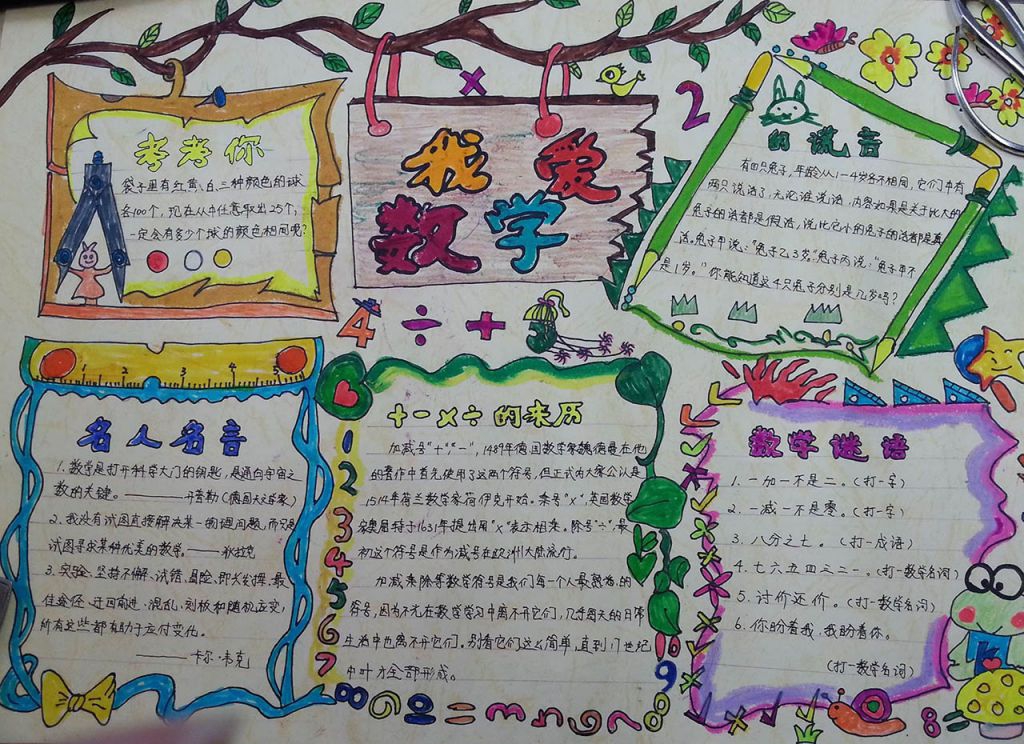 考考你
袋子里有红、黄、白三种颜色的球
各100个，现在从中任意取出25个，
一定会有多少个球的颜色相同呢？
我爱
数学
x
2
4 ÷ +
的谎言
有四只兔子，年龄从1—4岁各不相同，它们中有
两只说话了，无论谁说话，内容如果是关于比大的
兔子的话都是假话，说比它小的兔子的话都是真
话。兔子甲说："兔子乙3岁。"兔子丙说："兔子甲不
是1岁。"你能知道这4只兔子分别是几岁吗？
1 2 3 4 5
名人名言
1.数学是打开科学大门的钥匙，是通向宇宙之
数的关键。———开普勒（德国天文学家）
2.我没有试图直接解决某一物理问题，而只是
试图寻求某种优美的数学。——狄拉克
3.实验、坚持不懈、试错、冒险、即兴发挥、最
佳途径、迂回前进、混乱、刻板和随机应变，
所有这些都有助于应付变化。
———卡尔·韦克
+-×÷的来历
加减号"+"，"-"，1489年德国数学家魏德曼在他
的著作中首先使用了这两个符号，但正式为大家公认是
1514年荷兰数学家荷伊克开始。乘号"×"，英国数学
家奥屈特于1631年提出用"×"表示相乘。除号"÷"，最
初这个符号是作为减号在欧洲大陆流行。
加减乘除等数学符号是我们每一个人最熟悉的
符号，因为不光在数学学习中离不开它们，几乎每天的日常
生活中也离不开它们。别看它们这么简单，直到17世纪
中叶才全部形成。
1
2
3
4
5
6
7
10
9
8
数学谜语
1.一加一不是二。（打一字）
2.一减一不是零。（打一字）
3.八分之七。（打一成语）
4.七六五四三二一。（打一数学名词）
5.讨价还价。（打一数学名词）
6.你盼着我，我盼着你。
（打一数学名词）
8